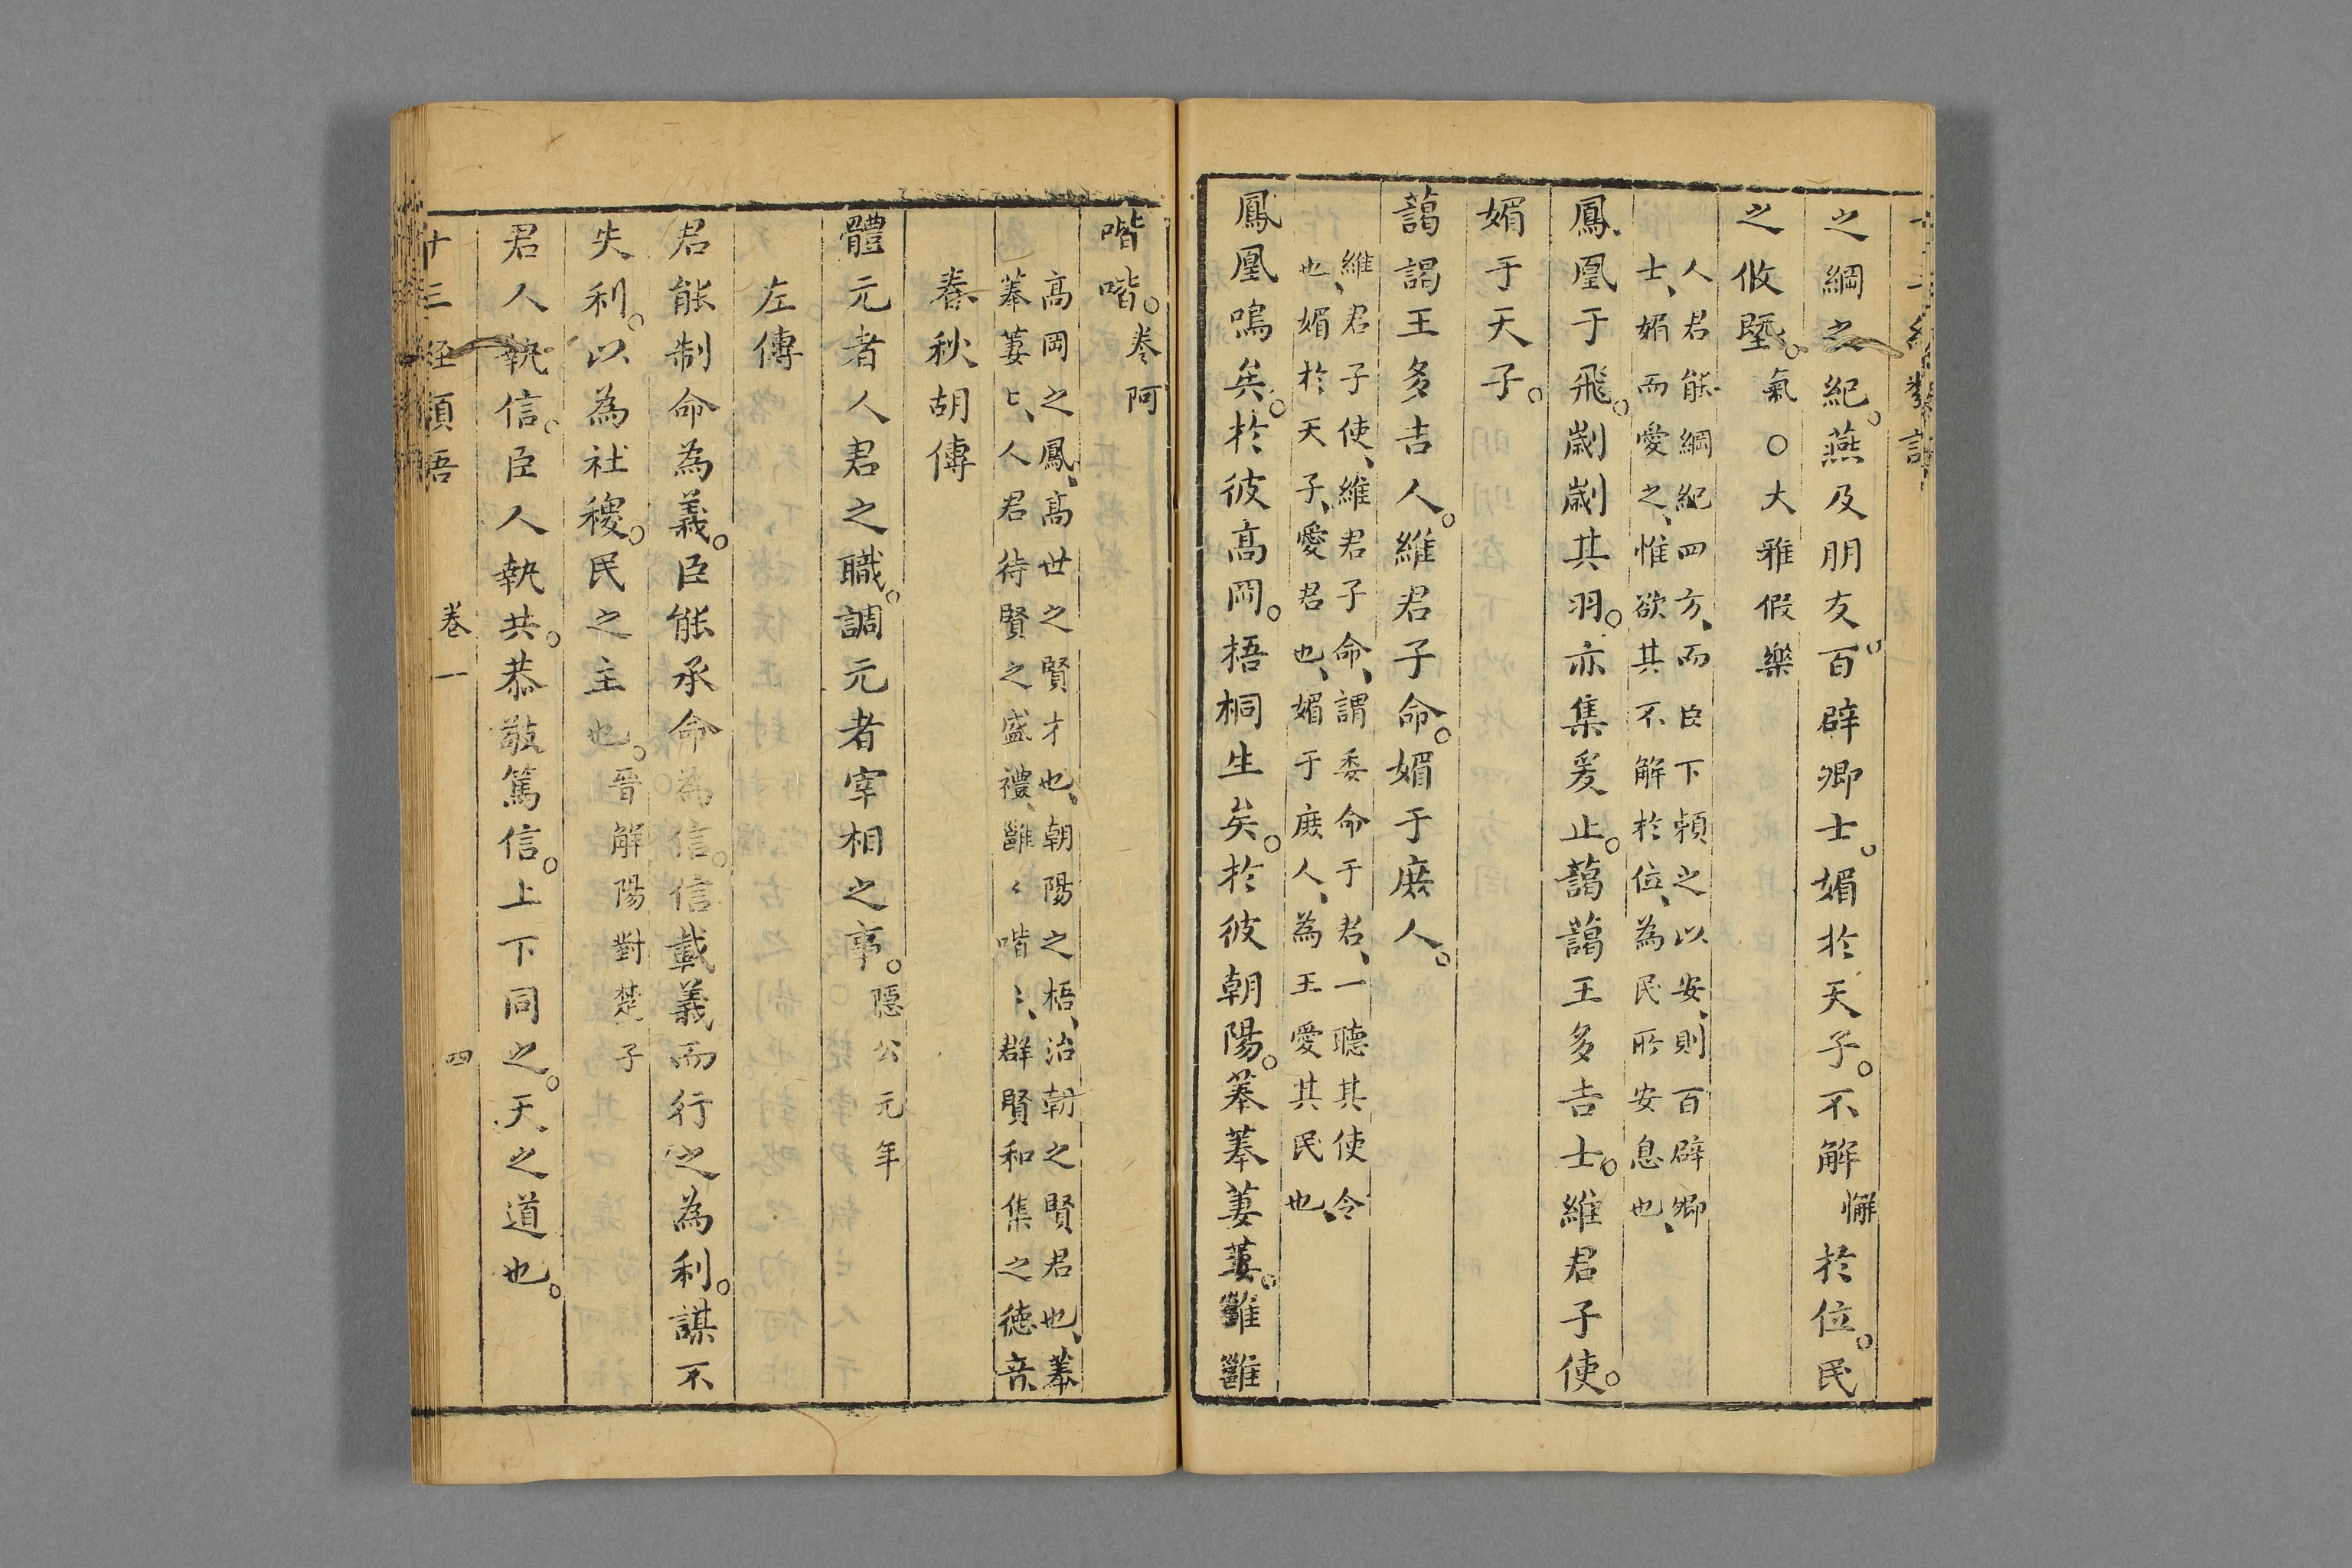 之綱之紀。燕及朋友。百辟卿士。媚於天子。不解懈於位。民
之攸塈。氣○大雅假樂
人君能綱紀四方、而臣下頼之以安、則百辟卿
士、媚而愛之、惟欲其不解於位、為民所安息也、
鳳凰于飛。劌劌其羽。亦集爰止。藹藹王多吉士。維君子使。
媚于天子。
藹謁王多吉人。維君子命。媚于庶人。
維君子使、維君子命、謂委命于君、一聽其使令
也、媚於天子、愛君也、媚于庶人、為王愛其民也、
鳳凰鳴矣。於彼髙岡。梧桐生矣。於彼朝陽。菶菶萋萋。雝雝
喈喈。卷阿
髙岡之鳳、髙世之賢才也、朝陽之梧、治朝之賢君也、菶
菶萋〻、人君待賢之盛禮、雝〻喈〻、群賢和集之徳音
春秋胡傳
體元者人君之職。調元者宰相之事。隠公元年
左傳
君能制命為義。臣能承命為信。信載義而行之為利。謀不
失利。以為社稷。民之主也。晉解陽對楚子
君人執信。臣人執共。恭敬篤信。上下同之。天之道也。
十三經頂吾
卷一
四